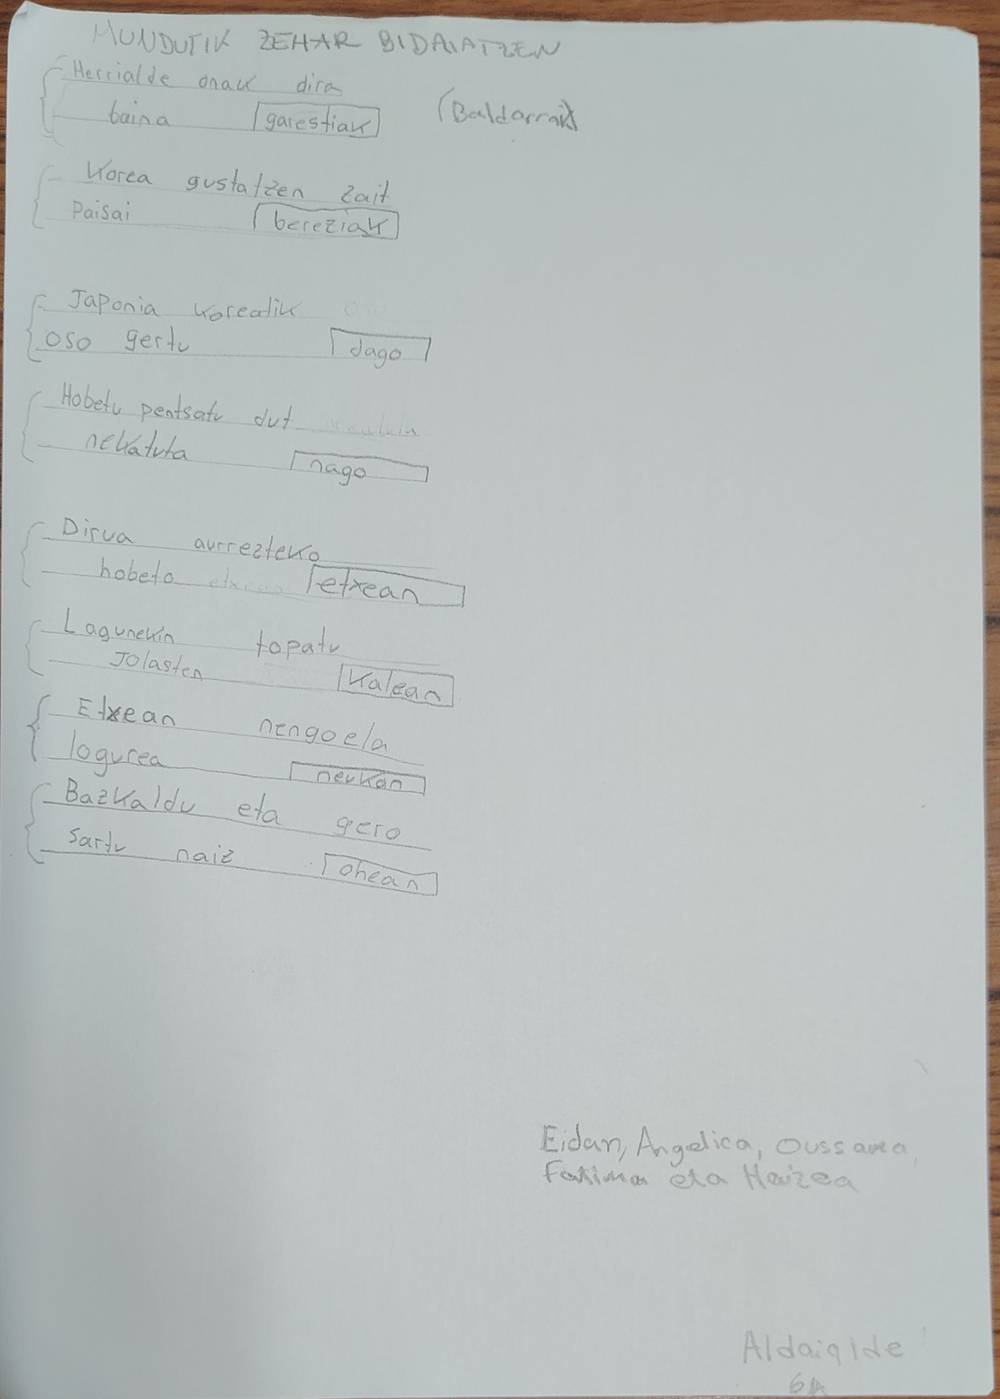 MUNDUTIK ZEHAR BIDAIATZEN
Herrialde onak dira
baina garestiak (Baldorrak)
Korea gustatzen zait
Paisai bereziak
Japonia koreatik
oso gertu dago
Hobetu pentsatu dut
nekatuta nago
Dirua aurrezteko
hobeto etxean
Lagunekin topatu
Jolasten kalean
Etxean nengoela
logurea neukan
Bazkaldu eta gero
sartu naiz ohean
Eidan, Angelica, Oussama,
Fatima eta Haizea
Aldaialde
6A